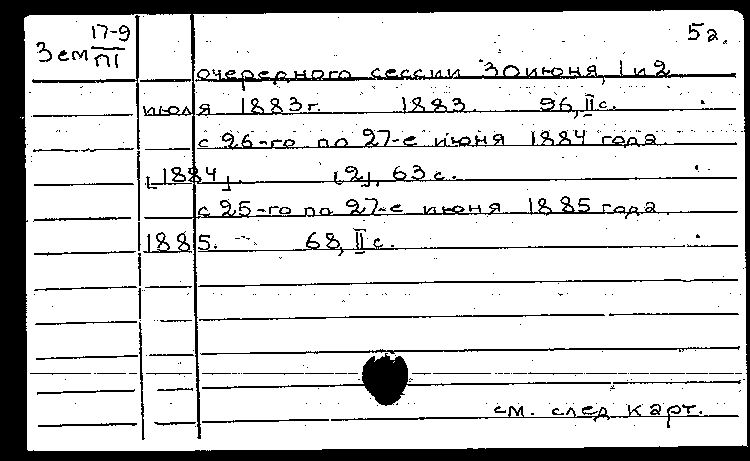 17-9
Зем П1
5а.
очередного сессии 30 июня, 1 и 2
июля 1883г. 1883. 96, II с.
с 26-го по 27-е июня 1884 года.
[1884]. [2], 63 с.
с 25-го по 27-е июня 1885 года.
1885. - 68, II с.
см. след карт.